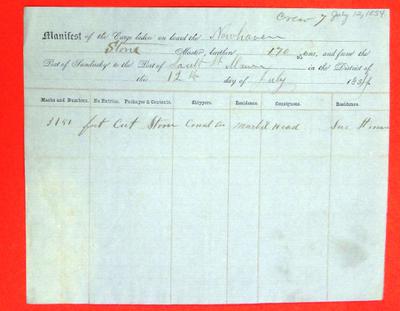 Crew 7 July 12, 1854
Manifest of the Cargo laden on board the Newhaven
Stone Master, burthen 170 tons, and from the
Port of Sandusky to the Port of Sault St Marie in the District of
the 12th day of July 1854
Marks and Numbers. No. Entries. Packages & Contents. Shippers. Residence. Consignees. Residence.
feet Cut Stone Canal Co Marbel Head